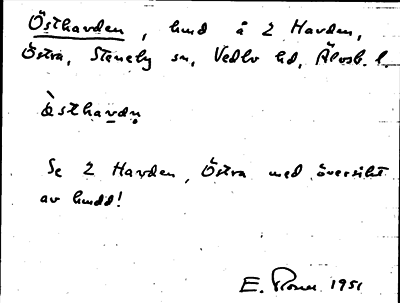 Östhavden, lund å 2 Havden,
Östra, Steneby sn, Vedbo hd, Älvsb. l.
östhavdn
Se 2 Havden, Östra med översikt
av lundd!
E. 1951